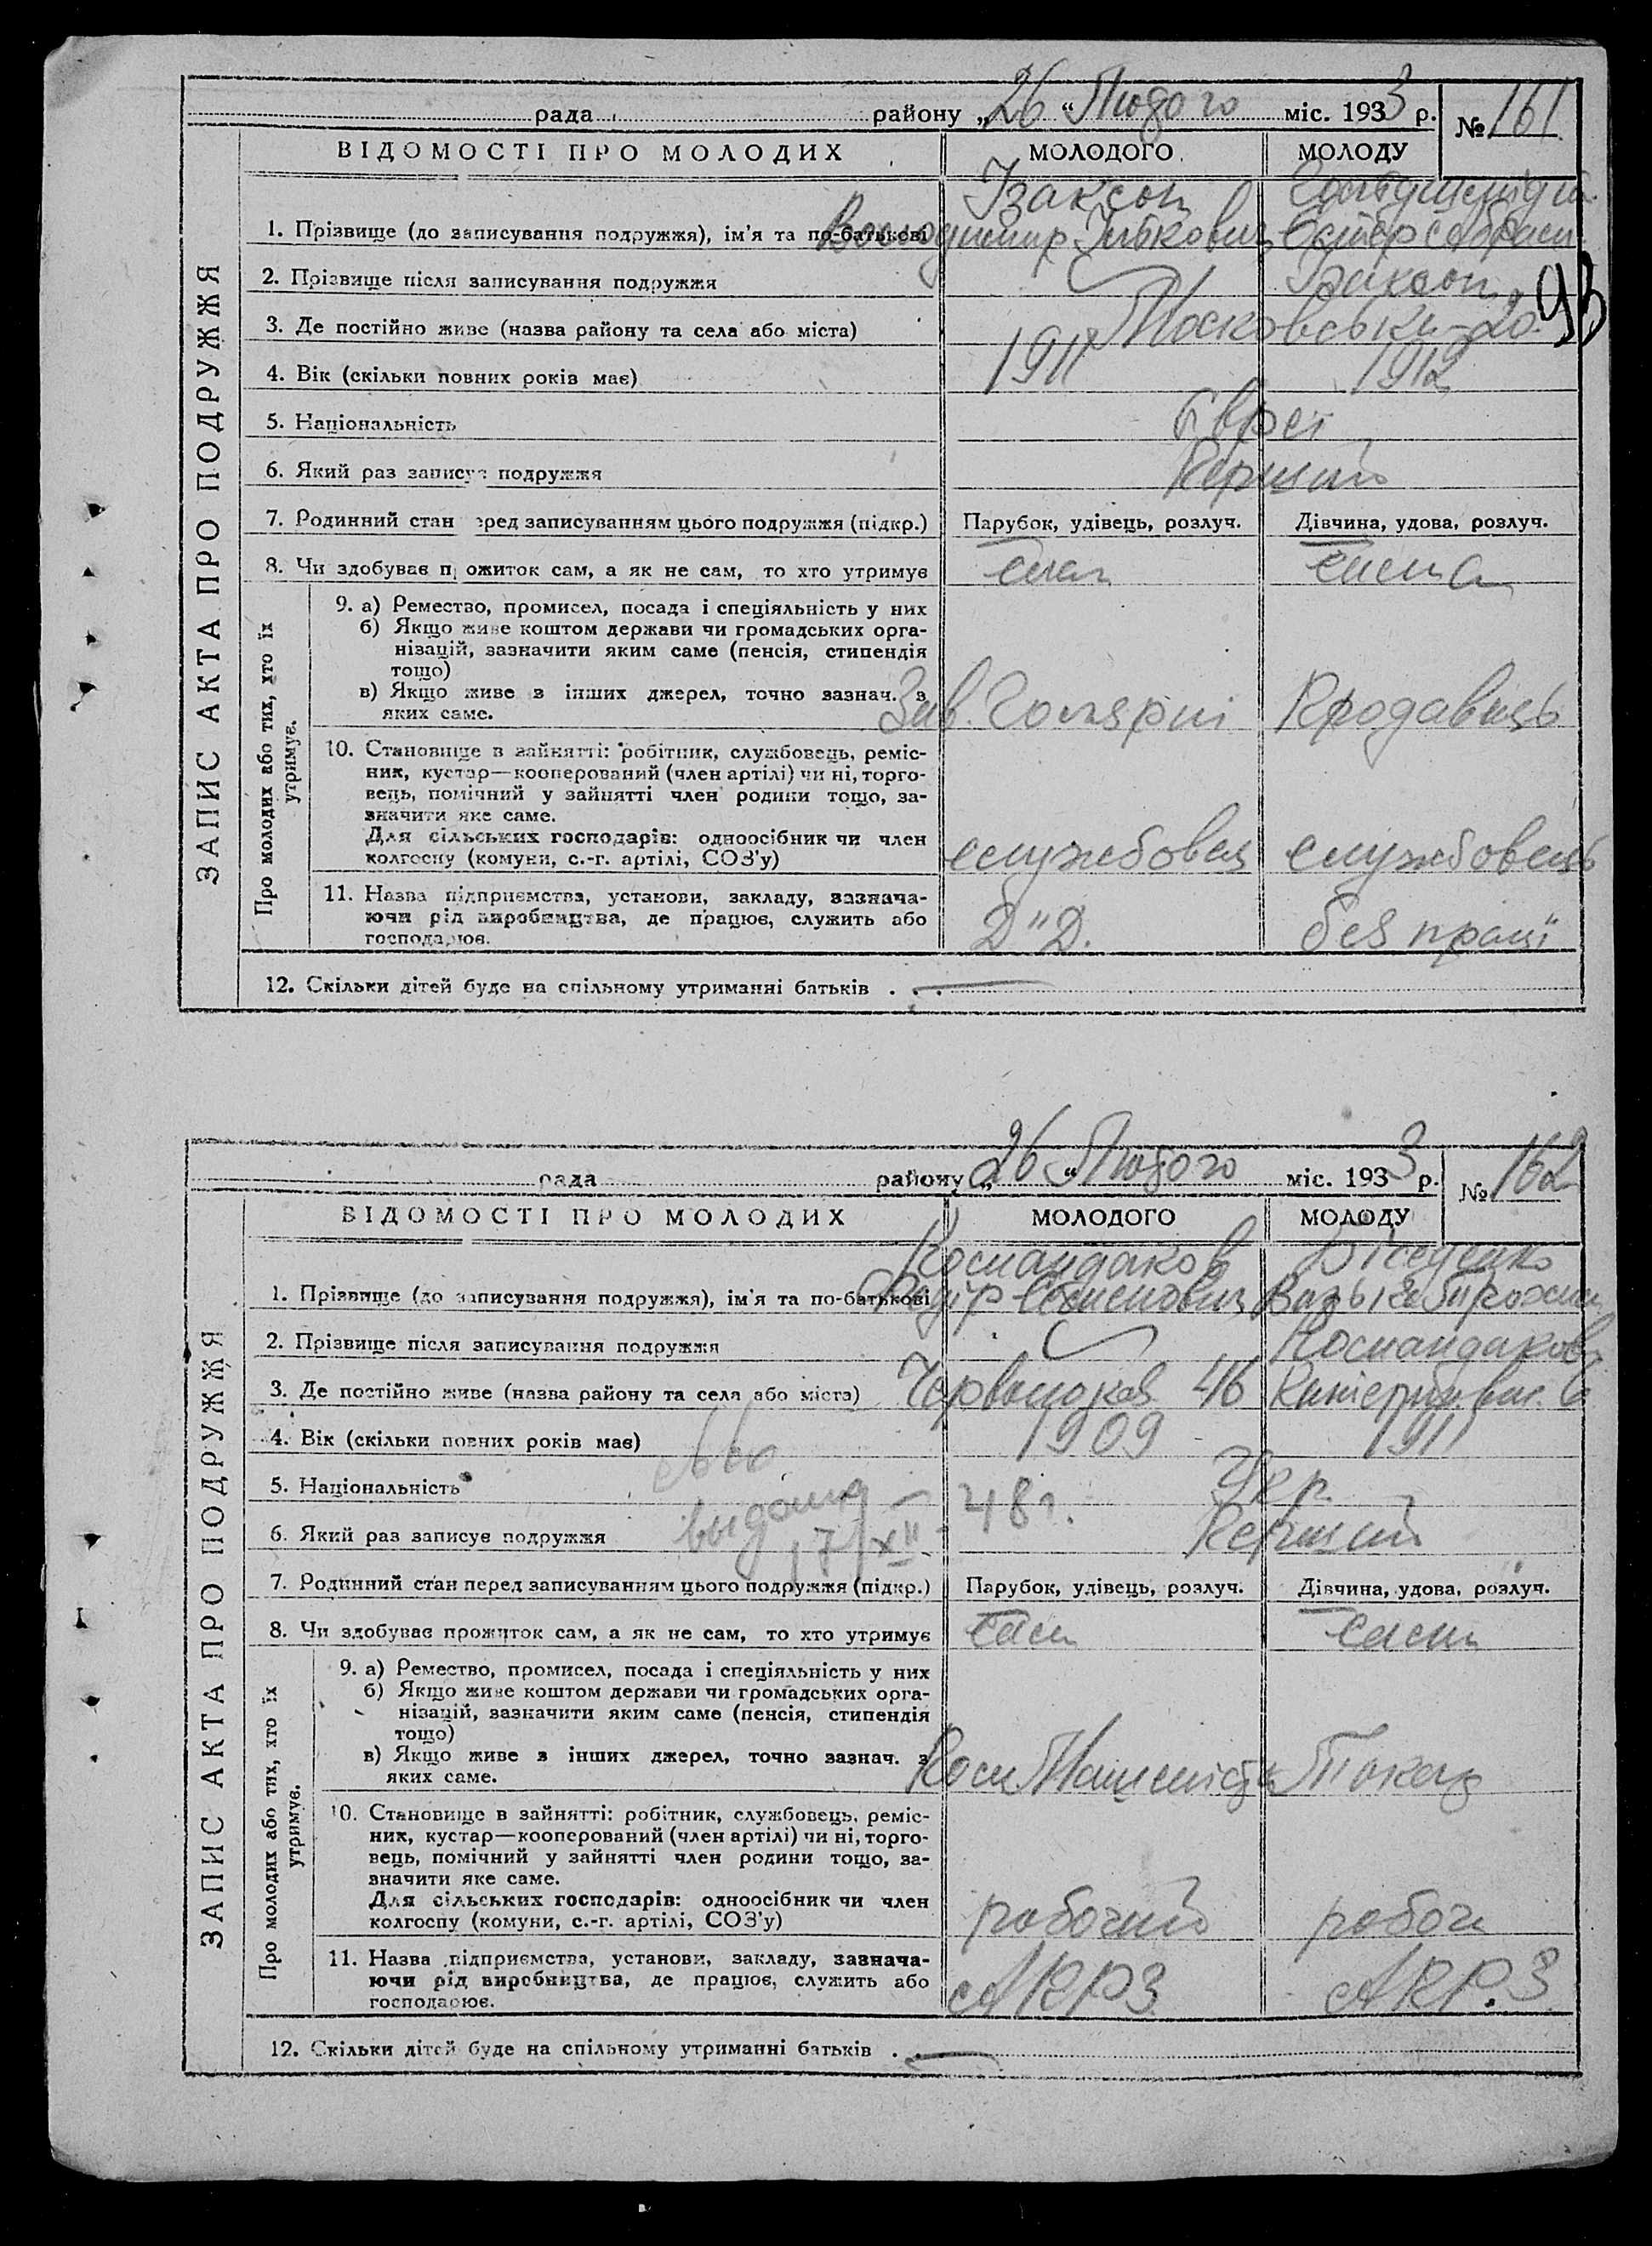 рада района „26“ Лютого міс. 1933 р. № 161
ВІДОМОСТІ ПРО МОЛОДИХ МОЛОДОГО МОЛОДУ
ЗАПИС АКТА ПРО ПОДРУЖЖЯ
Ізаксон
1. Прізвище (до записування подружжя), ім'я та по-батькові Володимир
2. Прізвище після записування подружжя Ізаксон
3. Де постійно живе (назва району та села або міста) Московська 20
93
4. Вік (скільки повних років має) 1911 1912
5. Національність Євреї
6. Який раз записує подружжя Перший
7. Родинний стан перед записуванням цього подружжя (підкр.) Парубок, удівець, розлуч. Дівчина, удова, розлуч.
8. Чи здобуває прожиток сам, а як не сам, то хто утримує сам сама
Про молодих або тих, хто їх утримує.
9. а) Ремество, промисел, посада і спеціяльність у них
б) Якщо живе коштом держави чи громадських орга-
нізацій, зазначити яким саме (пенсія, стипендія
тощо)
в) Якщо живе з інших джерел, точно зазнач. з
яких саме. Зав. Продавець
10. Становище в зайнятті: робітник, службовець, реміс-
ник, кустар—кооперований (член артілі) чи ні, торго-
вець, помічний у зайнятті член родини тощо, за-
значити яке саме.
Для сільських господарів: одноосібник чи член
колгоспу (комуни, с.-г. артілі, СОЗ'у) службовец службовець
11. Назва підприємства, установи, закладу, зазнача-
ючи рід виробництва, де працює, служить або
господарює. Д"Д. без праці
12. Скільки дітей буде на спільному утриманні батьків . . .
рада району „26“ Лютого міс. 1933 р. № 162
ВІДОМОСТІ ПРО МОЛОДИХ МОЛОДОГО МОЛОДУ
ЗАПИС АКТА ПРО ПОДРУЖЖЯ
1. Прізвище (до записування подружжя), ім'я та по-батькові Федір
2. Прізвище після записування подружжя
3. Де постійно живе (назва району та села або міста) 46
4. Вік (скільки повних років має) 1909 1911
5. Національність Укр.
выдано 17/XII – 48 г.
6. Який раз записує подружжя Перший
7. Родинний стан перед записуванням цього подружжя (підкр.) Парубок, удівець, розлуч. Дівчина, удова, розлуч.
8. Чи здобуває прожиток сам, а як не сам, то хто утримує сам сама
Про молодих або тих, хто їх утримує.
9. а) Ремество, промисел, посада і спеціяльність у них
б) Якщо живе коштом держави чи громадських орга-
нізацій, зазначити яким саме (пенсія, стипендія
тощо)
в) Якщо живе з інших джерел, точно зазнач. з
яких саме. Пом. Машиніста Токар
10. Становище в зайнятті: робітник, службовець, реміс-
ник, кустар—кооперований (член артілі) чи ні, торго-
вець, помічний у зайнятті член родини тощо, за-
значити яке саме.
Для сільських господарів: одноосібник чи член
колгоспу (комуни, с.-г. артілі, СОЗ'у) робочий робоч
11. Назва підприємства, установи, закладу, зазнача-
ючи рід виробництва, де працює, служить або
господарює. ПРЗ ПРЗ
12. Скільки дітей буде на спільному утриманні батьків . .